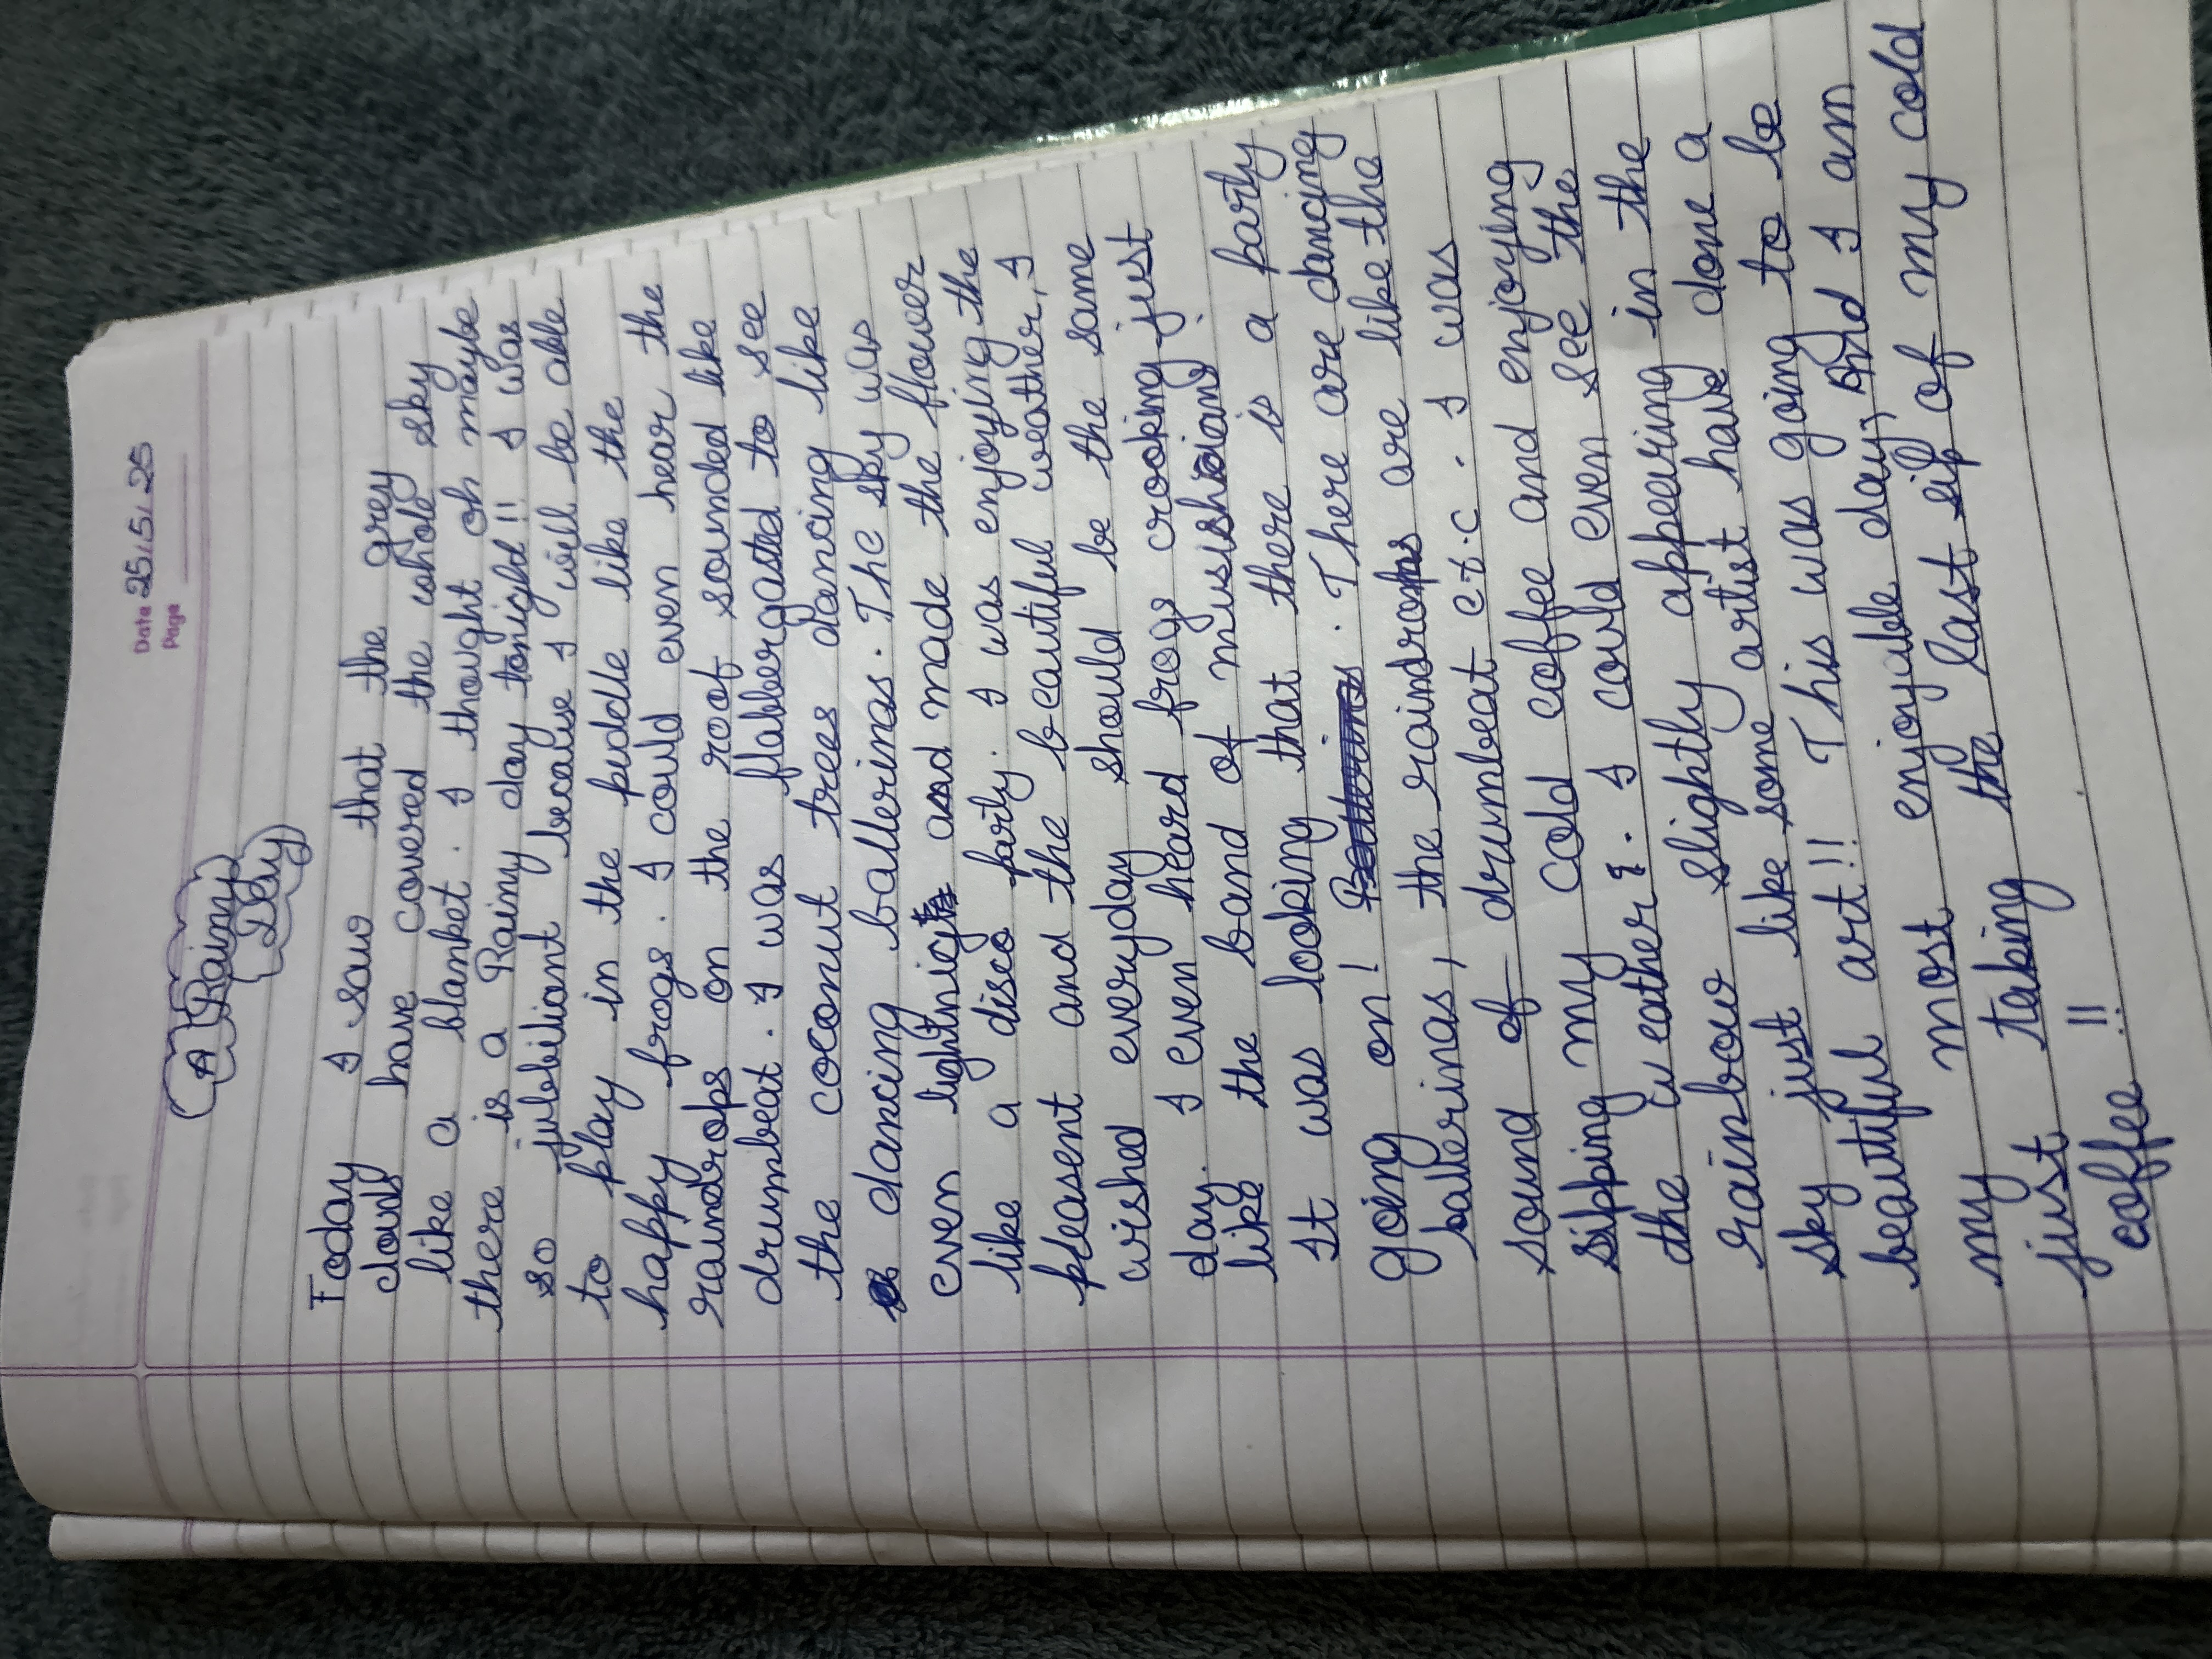 Date 25/5/25
Page
A Rainy
Day
Today I saw that the grey
clouds have covered the whole sky
like a blanket. I thought oh maybe
there is a Rainy day tonight!! I was
so jubbiliant because I will be able
to play in the puddle like the
happy frogs. I could even hear the
raindrops on the roof sounded like
drumbeat. I was flabbergasted to see
the coconut trees dancing like
dancing ballerinas. The sky was
even and made the flower
like a disco party. I was enjoying the
pleasent and the beautiful weather, I
wished everyday should be the same
day. I even heard frogs crooking just
like the band of
It was looking that there is a party
going on! There are dancing
ballerinas, the raindrops are like the
sound of drumbeat etc. I was
sipping my cold coffee and enjoying
the weather. I could even see the
rainbow slightly appearing in the
sky just like some artist have done a
beautiful art!! This was going to be
my most enjoyable day, and I am
just taking the last sip of my cold
coffee !!